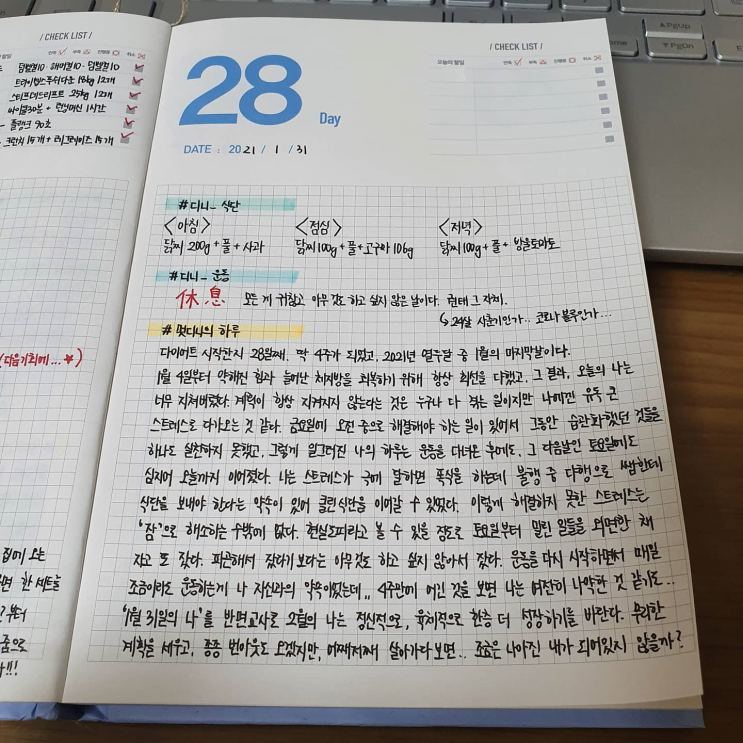 / CHECK LIST /
덤벨컬10 - 해머컬10 - 덤벨컬10
12개
스티프데드리프트 25kg 12개
싸이클30분 + 런닝머신 1시간
플랭크 90초
크런치 15개 + 레그레이즈 15개
(다음기회에...★)
집에 오는
한 세트를
부터
줌으로
!!!
/ CHECK LIST /
오늘의 할일
28 Day
DATE : 2021 / 1 / 31
#디니_ 식단
<아침> <점심> <저녁>
닭찌 200g + 풀 + 사과 닭찌 100g + 풀 + 고구마 106g 닭찌 100g + 풀 + 방울토마토
#디니_ 운동
休息 모든 게 귀찮고 아무 것도 하고 싶지 않은 날이다. 권태 그 자체.
↳ 24살 사춘기인가.. 코로나 블루인가...
# 멋디니의 하루
다이어트 시작한지 28일째. 딱 4주가 되었고, 2021년 열두달 중 1월의 마지막날이다.
1월 4일부터 약해진 힘과 늘어난 체지방을 회복하기 위해 항상 최선을 다했고, 그 결과, 오늘의 나는
너무 지쳐버렸다. 계획이 항상 지켜지지 않는다는 것은 누구나 다 겪는 일이지만 나에겐 유독 큰
스트레스로 다가오는 것 같다. 금요일에 오전 중으로 해결해야 하는 일이 있어서 그동안 습관화했던 것들을
하나도 실천하지 못했고, 그렇게 일그러진 나의 하루는 운동을 다녀온 후에도, 그 다음날인 토요일에도
심지어 오늘까지 이어졌다. 나는 스트레스가 극에 달하면 폭식을 하는데 불행 중 다행으로 쌤한테
식단을 보내야 한다는 약속이 있어 클린식단을 이어갈 수 있었다. 이렇게 해결하지 못한 스트레스는
'잠'으로 해소하는 수밖에 없다. 현실도피라고 볼 수 있을 정도로 토요일부터 밀린 일들을 외면한 채
자고 또 잤다. 피곤해서 잤다기 보다는 아무것도 하고 싶지 않아서 잤다. 운동을 다시 시작하면서 매일
조금이라도 운동하는게 나 자신과의 약속이었는데.. 4주만에 어긴 것을 보면 나는 여전히 나약한 것 같기도...
'1월 31일의 나'를 반면교사로 2월의 나는 정신적으로, 육체적으로 한층 더 성장하기를 바란다. 무리한
계획을 세우고, 종종 번아웃도 오겠지만, 어찌저찌 살아가다 보면.. 조금은 나아진 내가 되어있지 않을까?